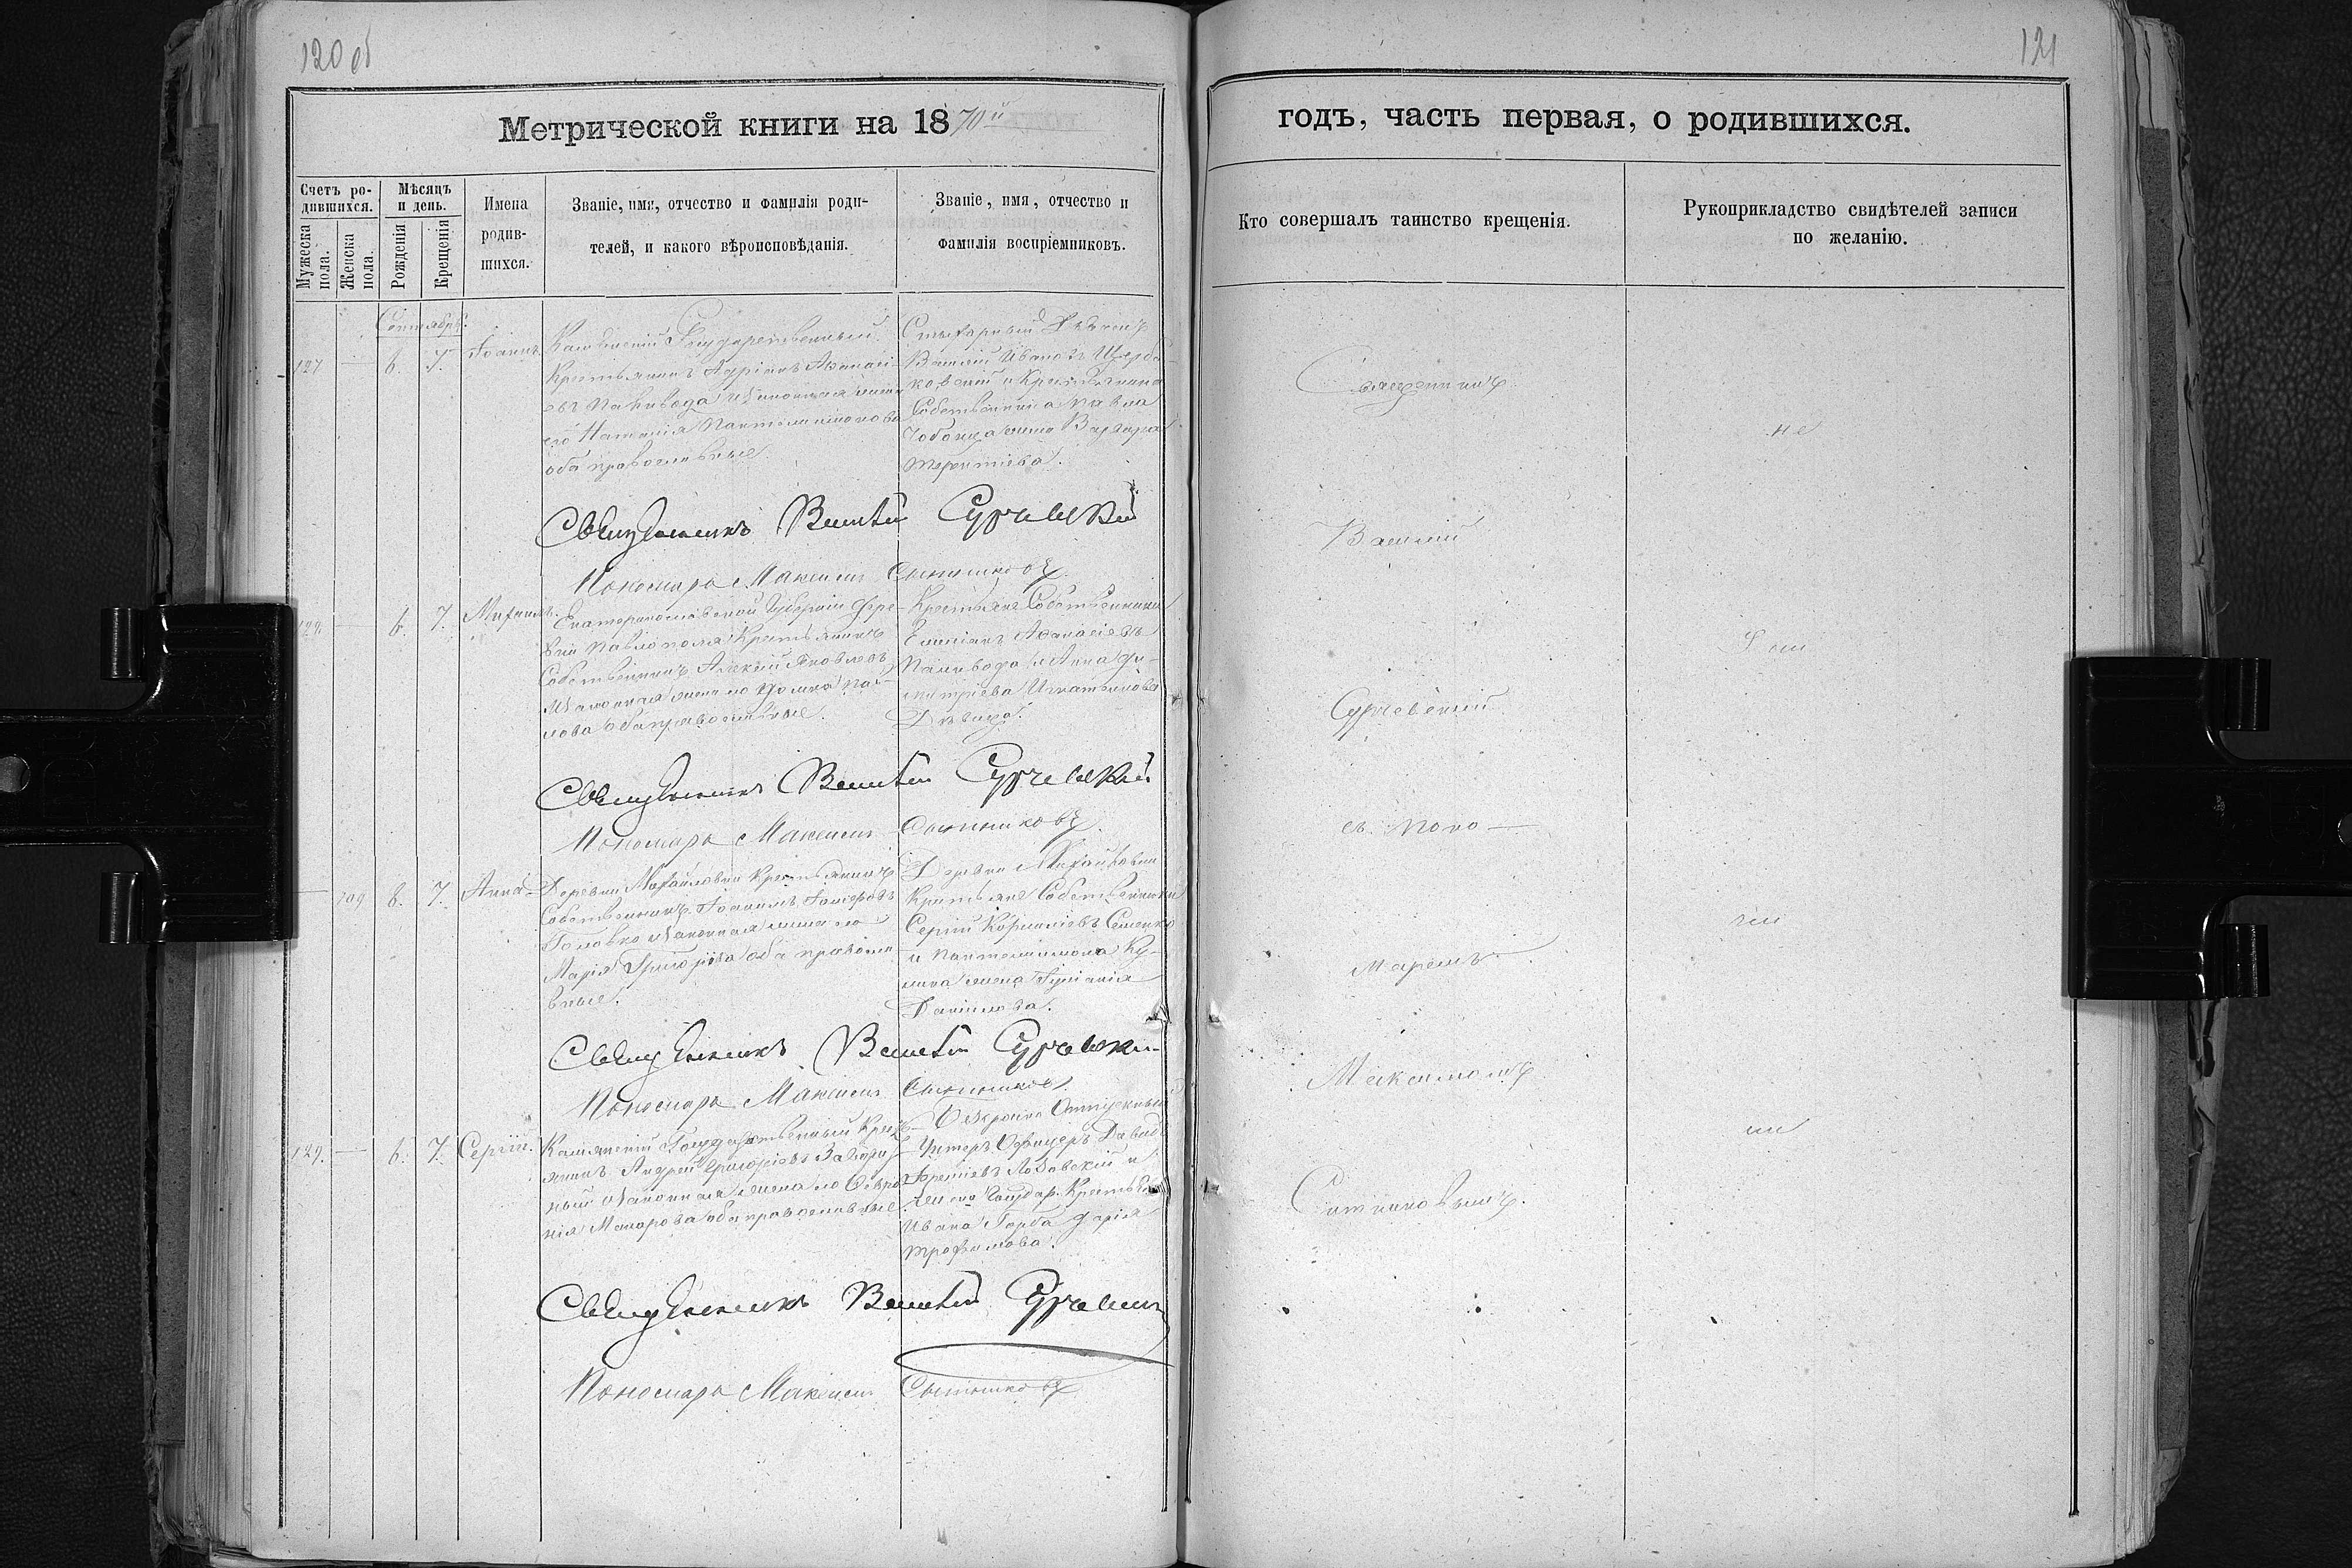 120 об
Метрической книги на 1870й
Счетъ ро-
дившихся.
Мужеска пола.
Женска пола.
Мѣсяцъ
и день.
Рожденія
Крещенія
Имена
родив-
шихся.
Званіе, имя, отчество и фамилія роди-
телей, и какого вѣроисповѣданія.
Званіе, имя, отчество и
фамилія воспріемниковъ.
Сентябрь.
127 — 6. 7. Іоаннъ
Государственный
Крестьянинъ Адріанъ Аѳанасі-
евъ Паливода и законная жена
его Наталія Пантелеимонова
оба православные.
Василій Ивановъ Щерба-
ковскій и Крестьянина
Собственника Павла
жена Варвара
Терентіева.
Священникъ Василій Сурчевскій
Пономарь Максимъ
128. — 6. 7. Михаилъ.
Екатеринославской Губерніи дере-
вни Павлополя Крестьянинъ
Собственникъ Алексій Яковлевъ
законная жена его
оба православные.
Крестьяне Собственники
Аѳанасіевъ
Паливода и Анна Ди-
митріева Игнатенкова
Дѣвица.
Священникъ Василій Сурчевскій
Пономарь Максимъ
— 109 6. 7. Анна
Деревни Михайловки Крестьянинъ
Собственникъ
Головко законная жена его
Марія Григоріева оба правосла-
вные.
Деревни Михайловки
Крестьяне Собственники
Сергій Корниліевъ Семенко
и Пантелеимона Ку-
жена
Даніилова.
Священникъ Василій Сурчевскій
Пономарь Максимъ
129. — 6. 7. Сергій.
Государственный Крест-
янинъ Андрей Григоріевъ Загори-
ный законная жена его Евро-
нія Макарова оба православные
Отпускный
Унтеръ Офицеръ Давидъ
Лозовскій и
жена Государ. Крестьян.
Ивана Горба Дарія
Трофимова.
Священникъ Василій Сурчевскій
Пономарь Максимъ
121
годъ, часть первая, о родившихся.
Кто совершалъ таинство крещенія.
Рукоприкладство свидѣтелей записи
по желанію.
Священникъ
Василій
Сурчевскій
съ Поно-
маремъ
Максимомъ
не